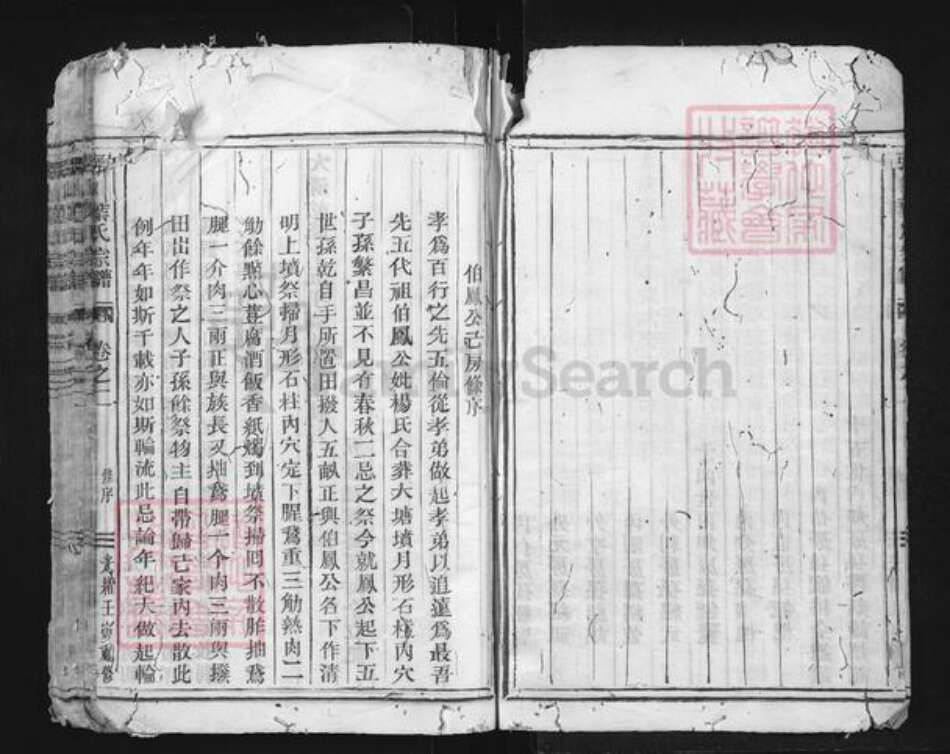 伯鳳公己房條序
孝爲百行之先五倫從孝弟做起孝弟以追遠爲最吾
先五代祖伯鳳公妣楊氏合葬大塘墳月形石樁內穴
子孫繁昌並不見有春秋二忌之祭今就鳳公起下五
世孫乾自手所置田撥人五畝正與伯鳳公名下作清
明上墳祭掃月形石柱內穴定下腥鵞重三觔熟肉二
觔餘㸃心荳腐酒飯香紙燭到墳祭掃囘不散胙抽鵞
腿一介肉三兩正與族長又抽鵞腿一个肉三兩與撥
田出作祭之人子孫餘祭物主自帶歸己家內去散此
例年年如斯千載亦如斯輪流此忌論年紀大做起輪
葉氏宗譜
卷之二
條序
壬寅
FamilySearch